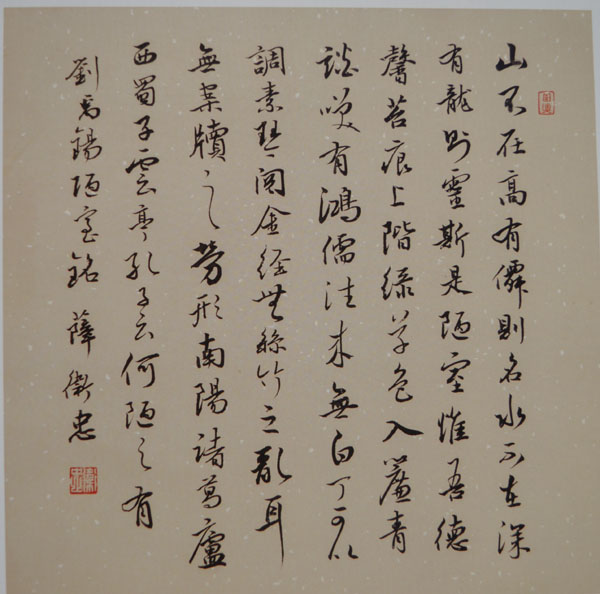 山不在高有僊則名水不在深
有龍則靈斯是陋室惟吾德
馨苔痕上階綠草色入簾青
談笑有鴻儒往來無白丁可以
調素琴閱金經無絲竹之亂耳
無案牘之勞形南陽諸葛廬
西蜀子雲亭孔子云何陋之有
劉禹錫陋室銘 薛衛忠